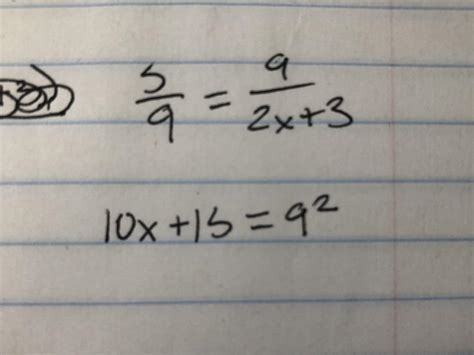 5/9 = 9/2x+3
10x+15=9²